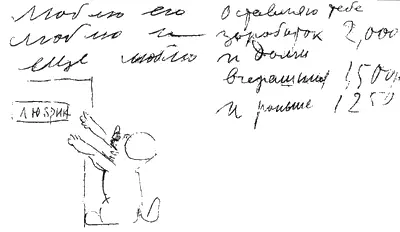 люблю его
люблю и
еще люблю
Оставляю тебе
заработок 2,000
и долги
вчерашний 1,500
и раньше 1250